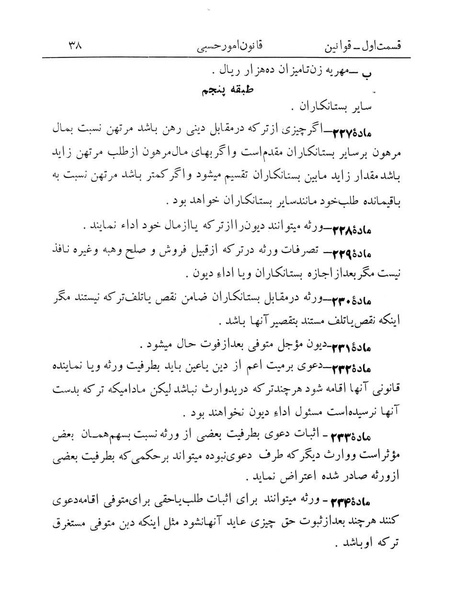 قسمت اول ـ قوانین قانون امور حسبی ۳۸
ب ـ مهریه زن تا میزان ده هزار ریال .
طبقه پنجم
سایر بستانکاران .
مادهٔ ۲۲۷ـ اگر چیزی از ترکه در مقابل دینی رهن باشد مرتهن نسبت بمال
مرهون بر سایر بستانکاران مقدم است و اگر بهای مال مرهون از طلب مرتهن زاید
باشد مقدار زاید مابین بستانکاران تقسیم میشود و اگر کمتر باشد مرتهن نسبت به
باقیمانده طلب خود مانند سایر بستانکاران خواهد بود .
مادهٔ ۲۲۸ـ ورثه میتوانند دیون را از ترکه یا از مال خود اداء نمایند .
مادهٔ ۲۲۹ـ تصرفات ورثه در ترکه از قبیل فروش و صلح و هبه و غیره نافذ
نیست مگر بعد از اجازه بستانکاران و یا اداء دیون .
مادهٔ ۲۳۰ـ ورثه در مقابل بستانکاران ضامن نقص یا تلف ترکه نیستند مگر
اینکه نقص یا تلف مستند بتقصیر آنها باشد .
مادهٔ ۲۳۱ـ دیون مؤجل متوفی بعد از فوت حال میشود .
مادهٔ ۲۳۲ـ دعوی بر میت اعم از دین یا عین باید بطرفیت ورثه و یا نماینده
قانونی آنها اقامه شود هر چند ترکه در ید وارث نباشد لیکن مادامیکه ترکه بدست
آنها نرسیده است مسئول اداء دیون نخواهند بود .
مادهٔ ۲۳۳ ـ اثبات دعوی بطرفیت بعضی از ورثه نسبت بسهم همان بعض
مؤثر است و وارث دیگر که طرف دعوی نبوده میتواند بر حکمی که بطرفیت بعضی
از ورثه صادر شده اعتراض نماید .
مادهٔ ۲۳۴ ـ ورثه میتوانند برای اثبات طلب یا حقی برای متوفی اقامه دعوی
کنند هر چند بعد از ثبوت حق چیزی عاید آنها نشود مثل اینکه دین متوفی مستغرق
ترکه او باشد .